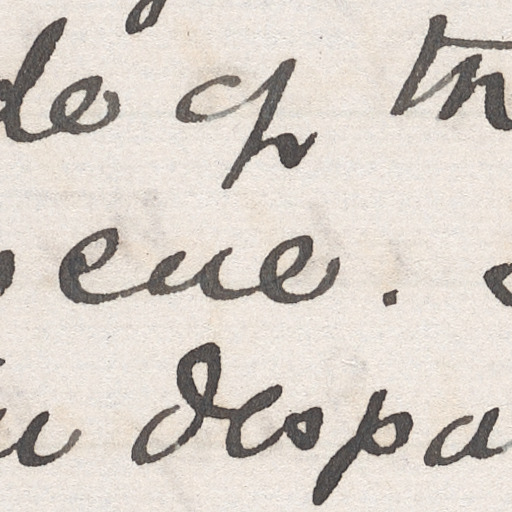 de of th
ene.
u despa